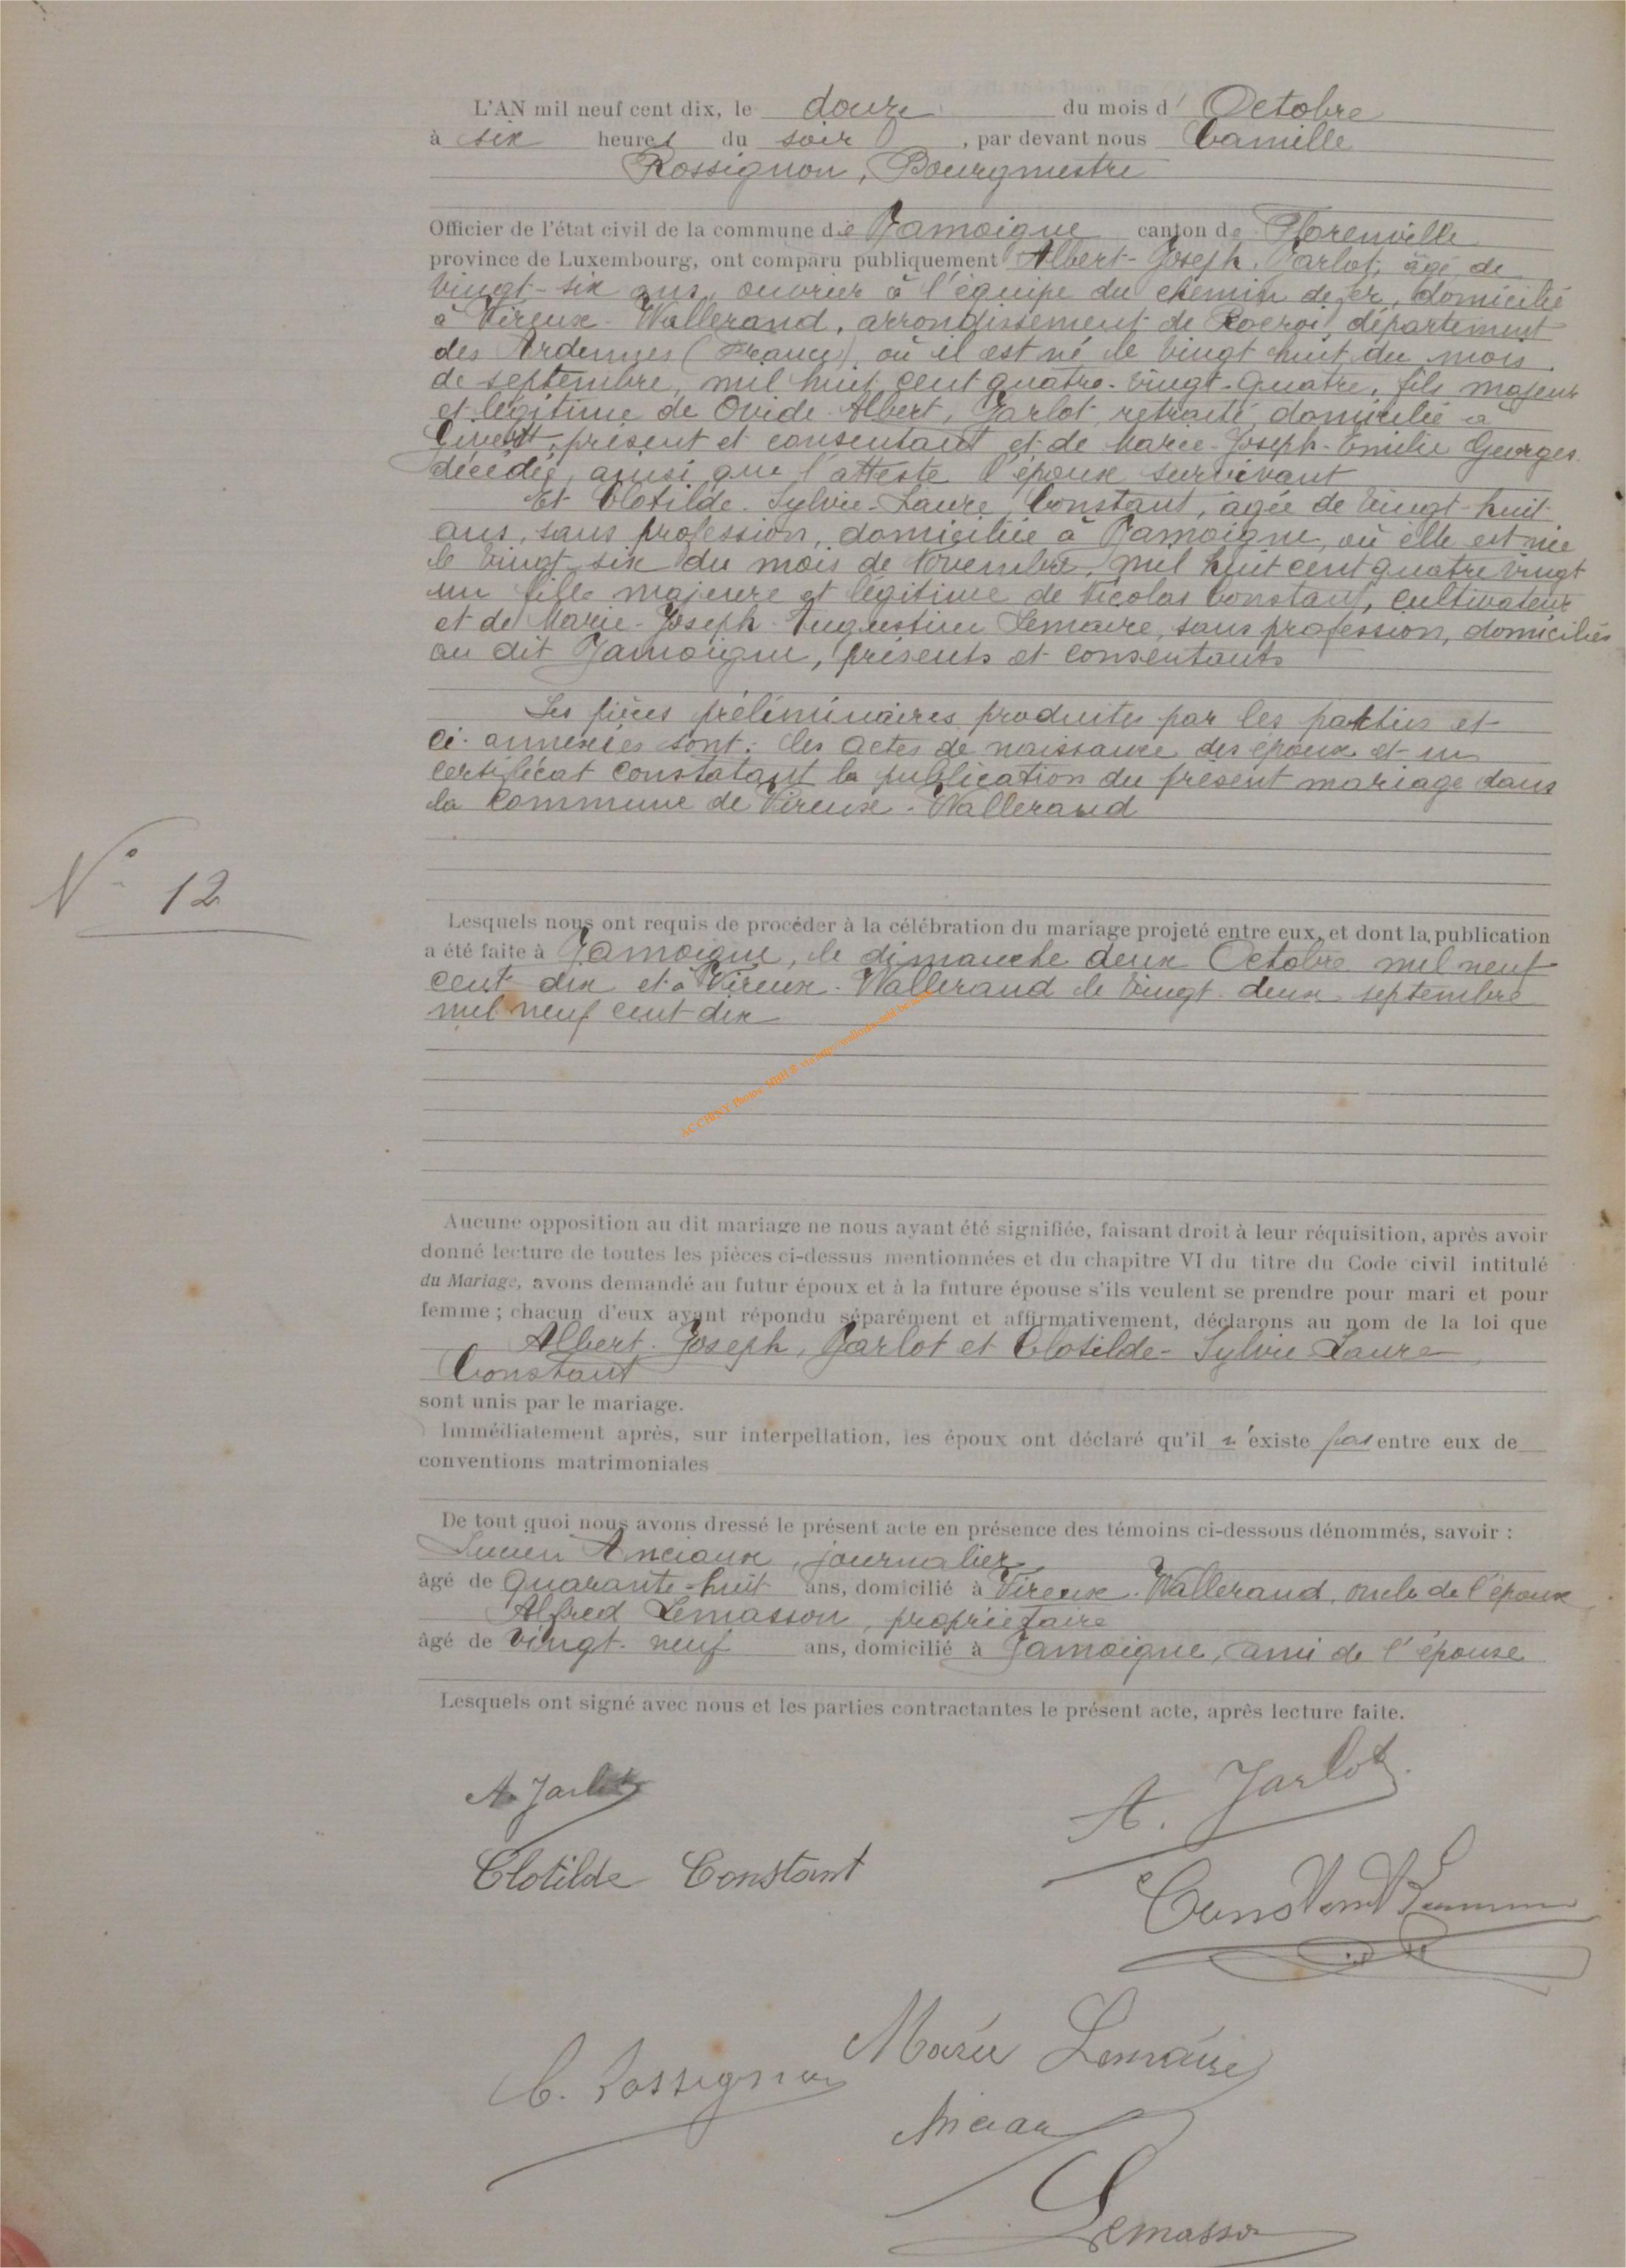 L'AN mil neuf cent dix, le douze du mois d' Octobre
à six heures du soir, par devant nous Camille
Rossignon, Bourgmestre
Officier de l'état civil de la commune de Jamoigne canton de Florenville
province de Luxembourg, ont comparu publiquement Albert-Joseph, Jarlot, âgé de
vingt-six ans, ouvrier à l'équipe du chemin de fer, domicilié
à Vireux-Wallerand, arrondissement de Rocroi, département
des Ardennes (France), où il est né le vingt huit du mois
de septembre, mil huit cent quatre-vingt-quatre, fils majeur
et légitime de Ovide Albert, Jarlot, retraité, domicilié à
présent et consentant et de Marie-Joseph-Emilie Georges
décédée, ainsi que l'atteste l'époux survivant
Et Clotilde-Sylvie-Laure, Constant, âgée de vingt-huit
ans, sans profession, domiciliée à Jamoigne, où elle est née
le vingt-six du mois de Novembre, mil huit cent quatre vingt
un fille majeure et légitime de Nicolas Constant, cultivateur
et de Marie-Joseph-Augustine Lemaire, sans profession, domiciliés
au dit Jamoigne, présents et consentants
Les pièces préliminaires produites par les parties et
ci-annexées sont: les actes de naissance des époux et un
certificat constatant la publication du présent mariage dans
la commune de Vireux-Wallerand
N° 12
Lesquels nous ont requis de procéder à la célébration du mariage projeté entre eux, et dont la publication
a été faite à Jamoigne, le dimanche deux Octobre mil neuf
cent dix et à Vireux-Wallerand le vingt-deux septembre
mil neuf cent dix
Aucune opposition au dit mariage ne nous ayant été signifiée, faisant droit à leur réquisition, après avoir
donné lecture de toutes les pièces ci-dessus mentionnées et du chapitre VI du titre du Code civil intitulé
du Mariage, avons demandé au futur époux et à la future épouse s'ils veulent se prendre pour mari et pour
femme ; chacun d'eux ayant répondu séparément et affirmativement, déclarons au nom de la loi que
Albert-Joseph, Jarlot et Clotilde-Sylvie Laure
Constant
sont unis par le mariage.
Immédiatement après, sur interpellation, les époux ont déclaré qu'il n'existe pas entre eux de
conventions matrimoniales
De tout quoi nous avons dressé le présent acte en présence des témoins ci-dessous dénommés, savoir :
Lucien Anciaux, journalier
âgé de quarante-huit ans, domicilié à Vireux-Wallerand, oncle de l'époux
Alfred Lemasson, propriétaire
âgé de vingt-neuf ans, domicilié à Jamoigne, ami de l'épouse
Lesquels ont signé avec nous et les parties contractantes le présent acte, après lecture faite.
A. Jarlot
A. Jarlot
Clotilde Constant
Constant
Marie Lemaire
C. Rossignon
Anciaux
Lemasson